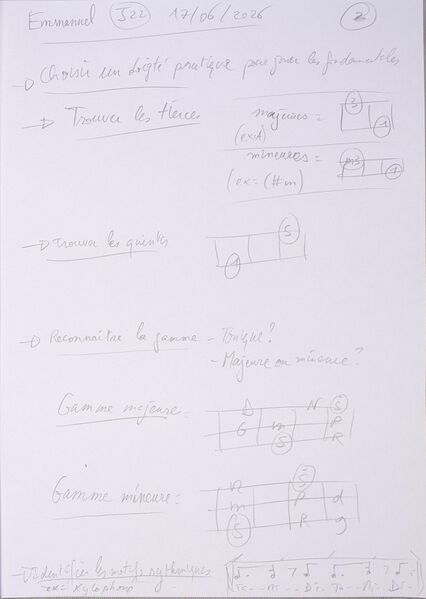 Emmanuel S22 17/06/2026 2
→ Choisir un doigté pratique pour jouer les fondamentales
→ Trouver les tierces
majeures = 3 1
(ex: A)
mineures = m3 1
(ex = C#m)
→ Trouver les quintes
5
1
→ Reconnaître la gamme - Tonique?
- Majeure ou mineure?
Gamme majeure =
D N S
G m P
S R
Gamme mineure =
n S
m P d
S R g
→ Identifier les motifs rythmiques
ex = xylophone